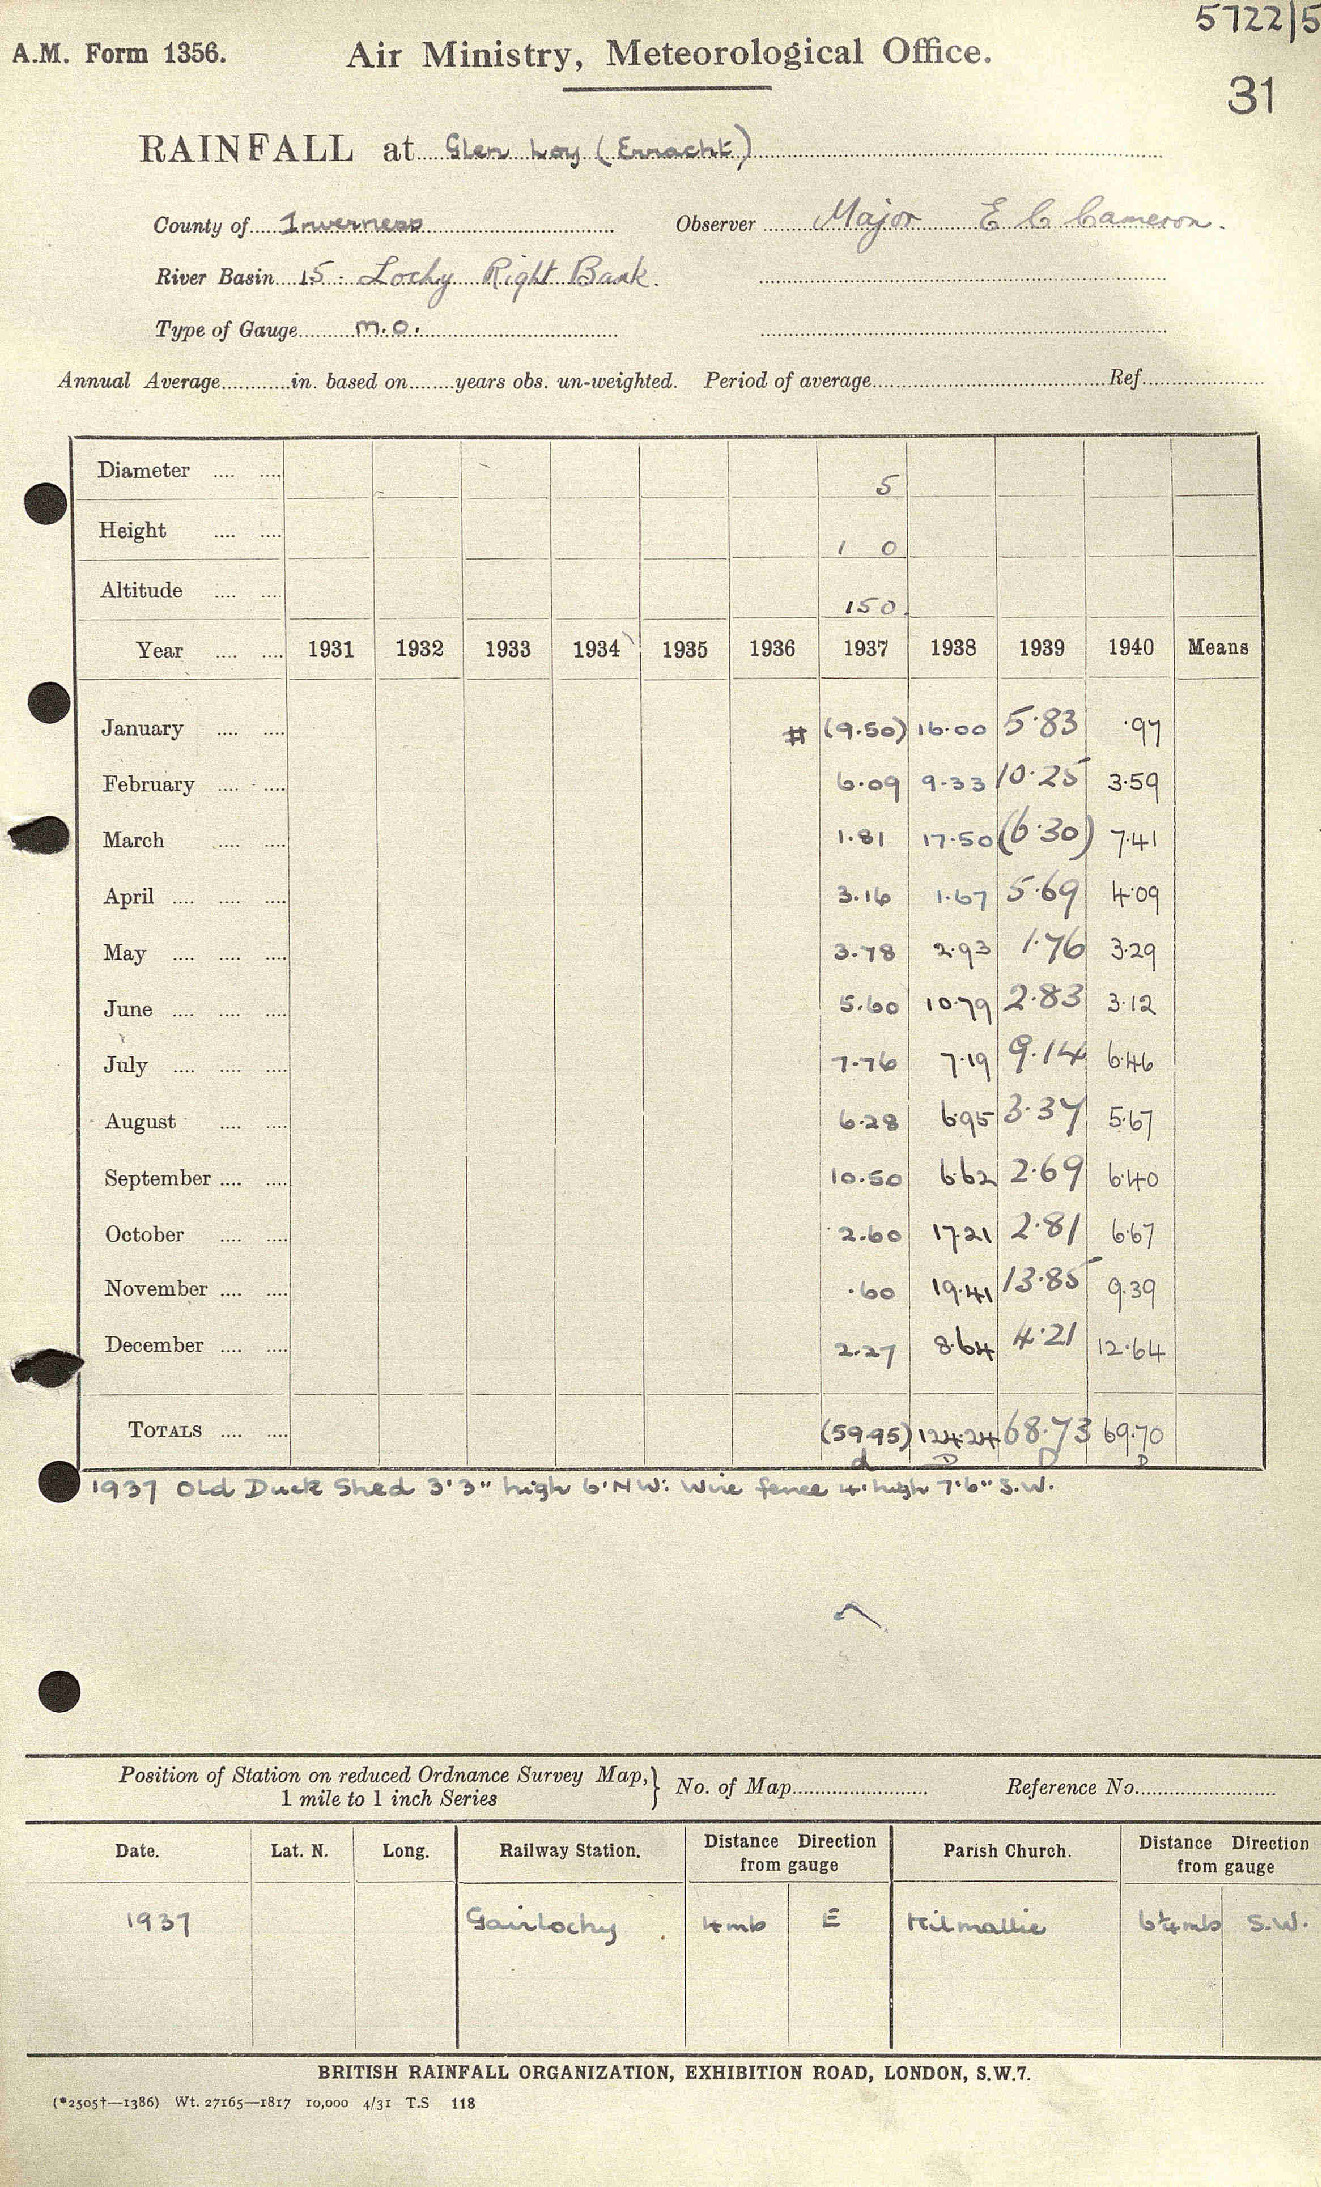 5722/5
A.M. Form 1356. Air Ministry, Meteorological Office.
31
RAINFALL at Glen Loy (Erracht)
County of Inverness Observer Major E C Cameron.
River Basin 15. Lochy Right Bank.
Type of Gauge M.O.
Annual Average in. based on years obs. un-weighted. Period of average Ref
Diameter 5
Height 1 0
Altitude 150
Year 1931 1932 1933 1934 1935 1936 1937 1938 1939 1940 Means
January # (9.50) 16.00 5.83 .97
February 6.09 9.33 10.25 3.59
March 1.81 17.50 (6.30) 7.41
April 3.16 1.67 5.69 4.09
May 3.78 2.93 1.76 3.29
June 5.60 10.79 2.83 3.12
July 7.76 7.19 9.14 6.46
August 6.28 6.95 3.37 5.67
September 10.50 6.62 2.69 6.40
October 2.60 17.21 2.81 6.67
November .60 19.41 13.85 9.39
December 2.27 8.64 4.21 12.64
TOTALS (59.95) 124.24 68.73 69.70
d D D D
1937 Old Duck Shed 3'3" high 6' NW: Wire fence 4' high 7'6" S.W.
Position of Station on reduced Ordnance Survey Map, 1 mile to 1 inch Series } No. of Map Reference No.
Date. Lat. N. Long. Railway Station. Distance Direction from gauge Parish Church. Distance Direction from gauge
1937 Gairlochy 4 mls E Kilmallie 6¼ mls S.W.
BRITISH RAINFALL ORGANIZATION, EXHIBITION ROAD, LONDON, S.W.7.
(*2505†—1386) Wt. 27165—1817 10,000 4/31 T.S 118